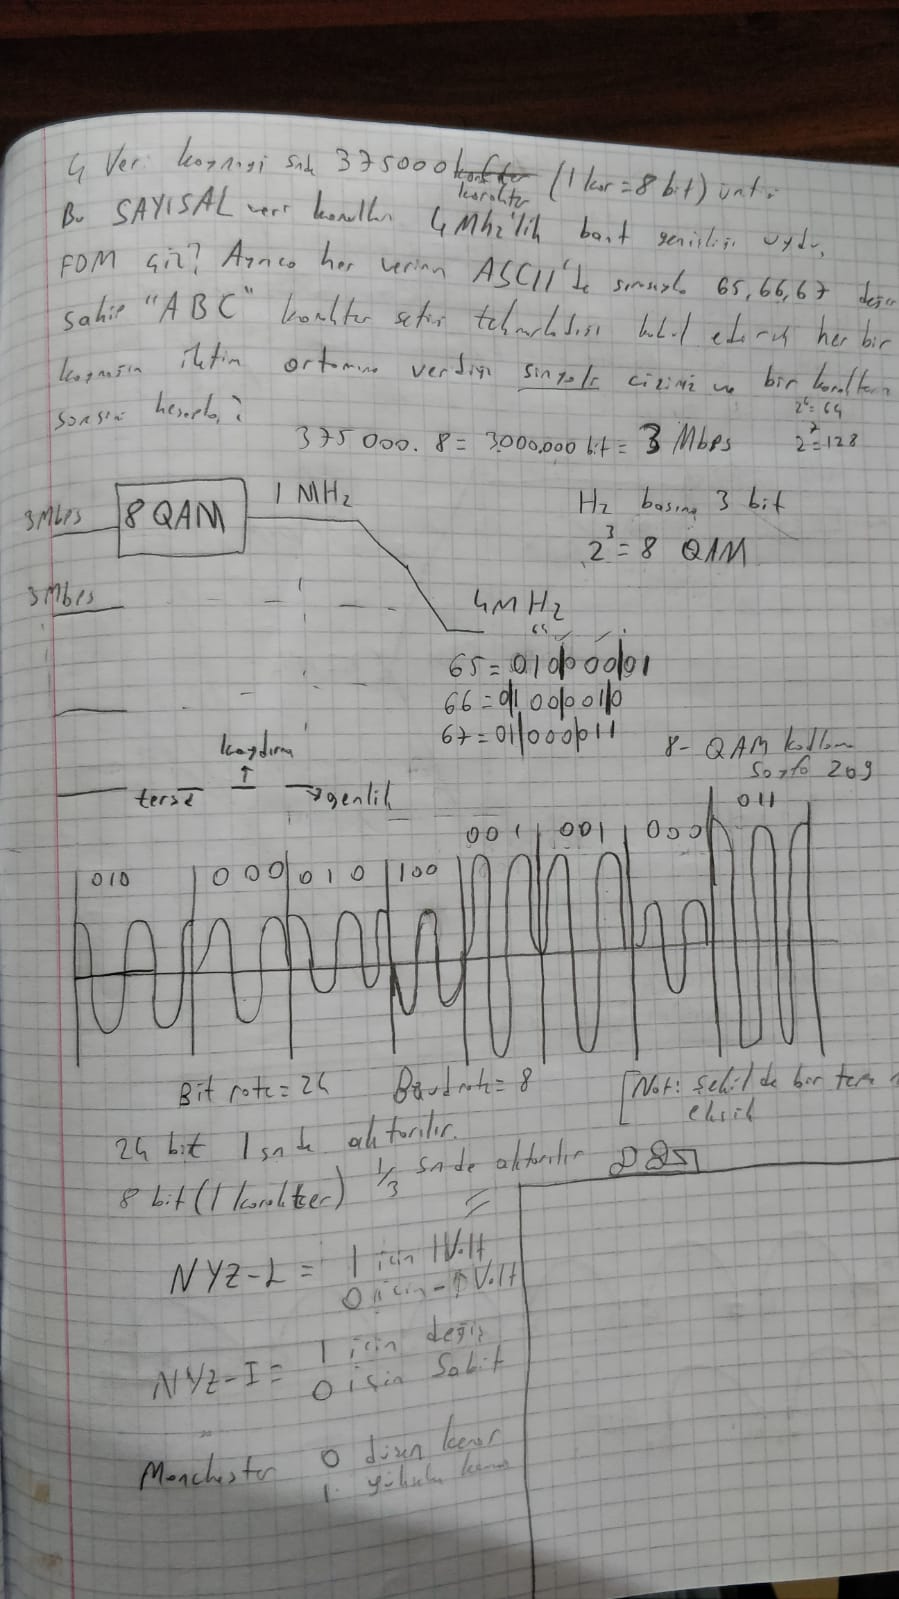 4 Veri kaynağı snde 375000 karakter (1 kar = 8 bit)
Bu SAYISAL veri kanalları 4 Mhz'lik bant genişliği uydu,
FDM çiz? Ayrıca her verinin ASCII'de sırasıyla 65, 66, 67 değer
sahip "ABC" karakter setini kabul ederek her bir
kaynağın iletim ortamına verdiği sinyale çiziniz ve bir karakterin
hesapla?
2^6 = 64
375 000 . 8 = 3000,000 bit = 3 Mbps
2^7 = 128
3Mbps 8 QAM 1 MHz
Hz başına 3 bit
2^3 = 8 QAM
3 Mbps
4MHz
65 = 01000001
66 = 01000010
67 = 01000011
8-QAM
Sayfa 209
kaydırma
terse
genlik
010 000 010 100 001 001 000 011
Bit rate = 24 Baudrate = 8
[Not: Şekilde bir tane
eksik
24 bit 1 sn de aktarılır.
8 bit (1 karakter) 1/3 sn de aktarılır
NYZ-L = 1 için 1Volt
0 için -1Volt
NYZ-I = 1 için değiş
0 için Sabit
Manchester 0 düşen kenar
1 yükselen kenar